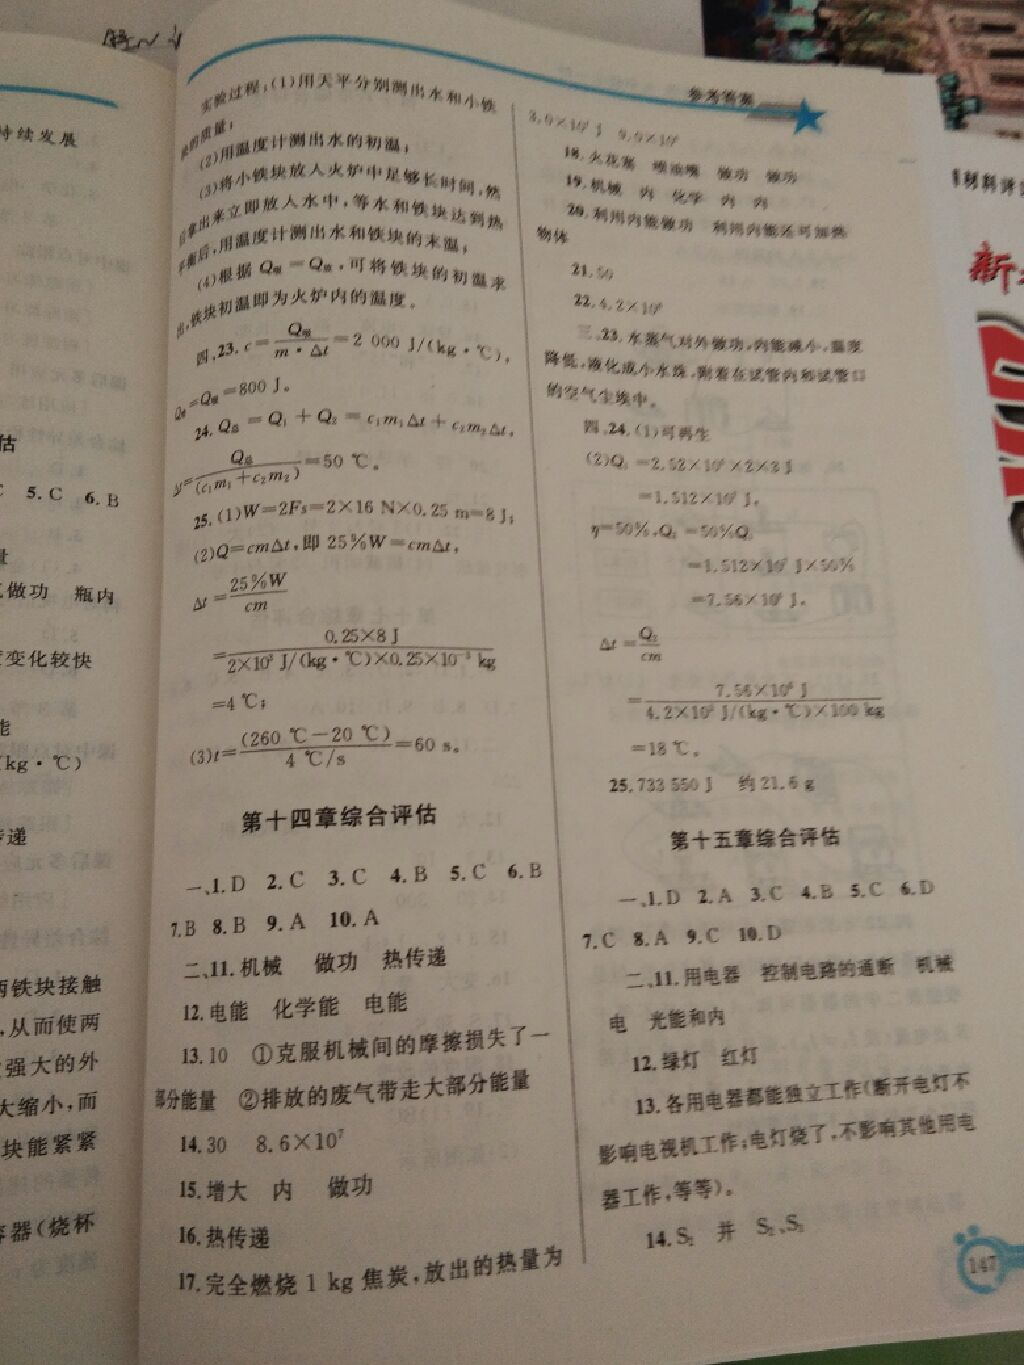 持续发展
估
C 5.C 6.B
量
做功 瓶内
变化较快
能
(kg·℃)
传递
两铁块接触
,从而使两
强大的外
大缩小,而
块能紧紧
容器(烧杯
实验过程:(1)用天平分别测出水和小铁
块的质量;
(2)用温度计测出水的初温;
(3)将小铁块放入火炉中足够长时间,然
后拿出来立即放入水中,等水和铁块达到热
平衡后,用温度计测出水和铁块的末温;
(4)根据Q吸=Q放,可将铁块的初温求
出,铁块初温即为火炉内的温度。
四、23. c=Q吸/(m·Δt)=2 000 J/(kg·℃),
Q放=Q吸=800 J。
24. Q总=Q₁+Q₂=c₁m₁Δt+c₂m₂Δt,
Δt=Q总/(c₁m₁+c₂m₂)=50 ℃。
25.(1)W=2Fs=2×16 N×0.25 m=8 J;
(2)Q=cmΔt,即25%W=cmΔt,
Δt=25%W/cm
=0.25×8 J/(2×10³ J/(kg·℃)×0.25×10⁻³ kg)
=4 ℃;
(3)t=(260 ℃-20 ℃)/(4 ℃/s)=60 s。
第十四章综合评估
一、1.D 2.C 3.C 4.B 5.C 6.B
7.B 8.B 9.A 10.A
二、11.机械 做功 热传递
12.电能 化学能 电能
13.10 ①克服机械间的摩擦损失了一
部分能量 ②排放的废气带走大部分能量
14.30 8.6×10⁷
15.增大 内 做功
16.热传递
17.完全燃烧1 kg焦炭,放出的热量为
参考答案
18.火花塞 喷油嘴 做功 做功
19.机械 内 化学 内 内
20.利用内能做功 利用内能还可加热
物体
21.50
三、23.水蒸气对外做功,内能减小,温度
降低,液化成小水珠,附着在试管内和试管口
的空气尘埃中。
四、24.(1)可再生
=1.512×10⁷ J,
η=50%,Q₂=50%Q₁
=1.512×10⁷ J×50%
=7.56×10⁶ J,
Δt=Q₂/cm
=7.56×10⁶ J/(4.2×10³ J/(kg·℃)×100 kg)
=18 ℃。
25.733 550 J 约21.6 g
第十五章综合评估
一、1.D 2.A 3.C 4.B 5.C 6.D
7.C 8.A 9.C 10.D
二、11.用电器 控制电路的通断 机械
电 光能和内
12.绿灯 红灯
13.各用电器都能独立工作(断开电灯不
影响电视机工作;电灯烧了,不影响其他用电
器工作,等等)。
14.S₂ 并 S₂、S₃
147
新